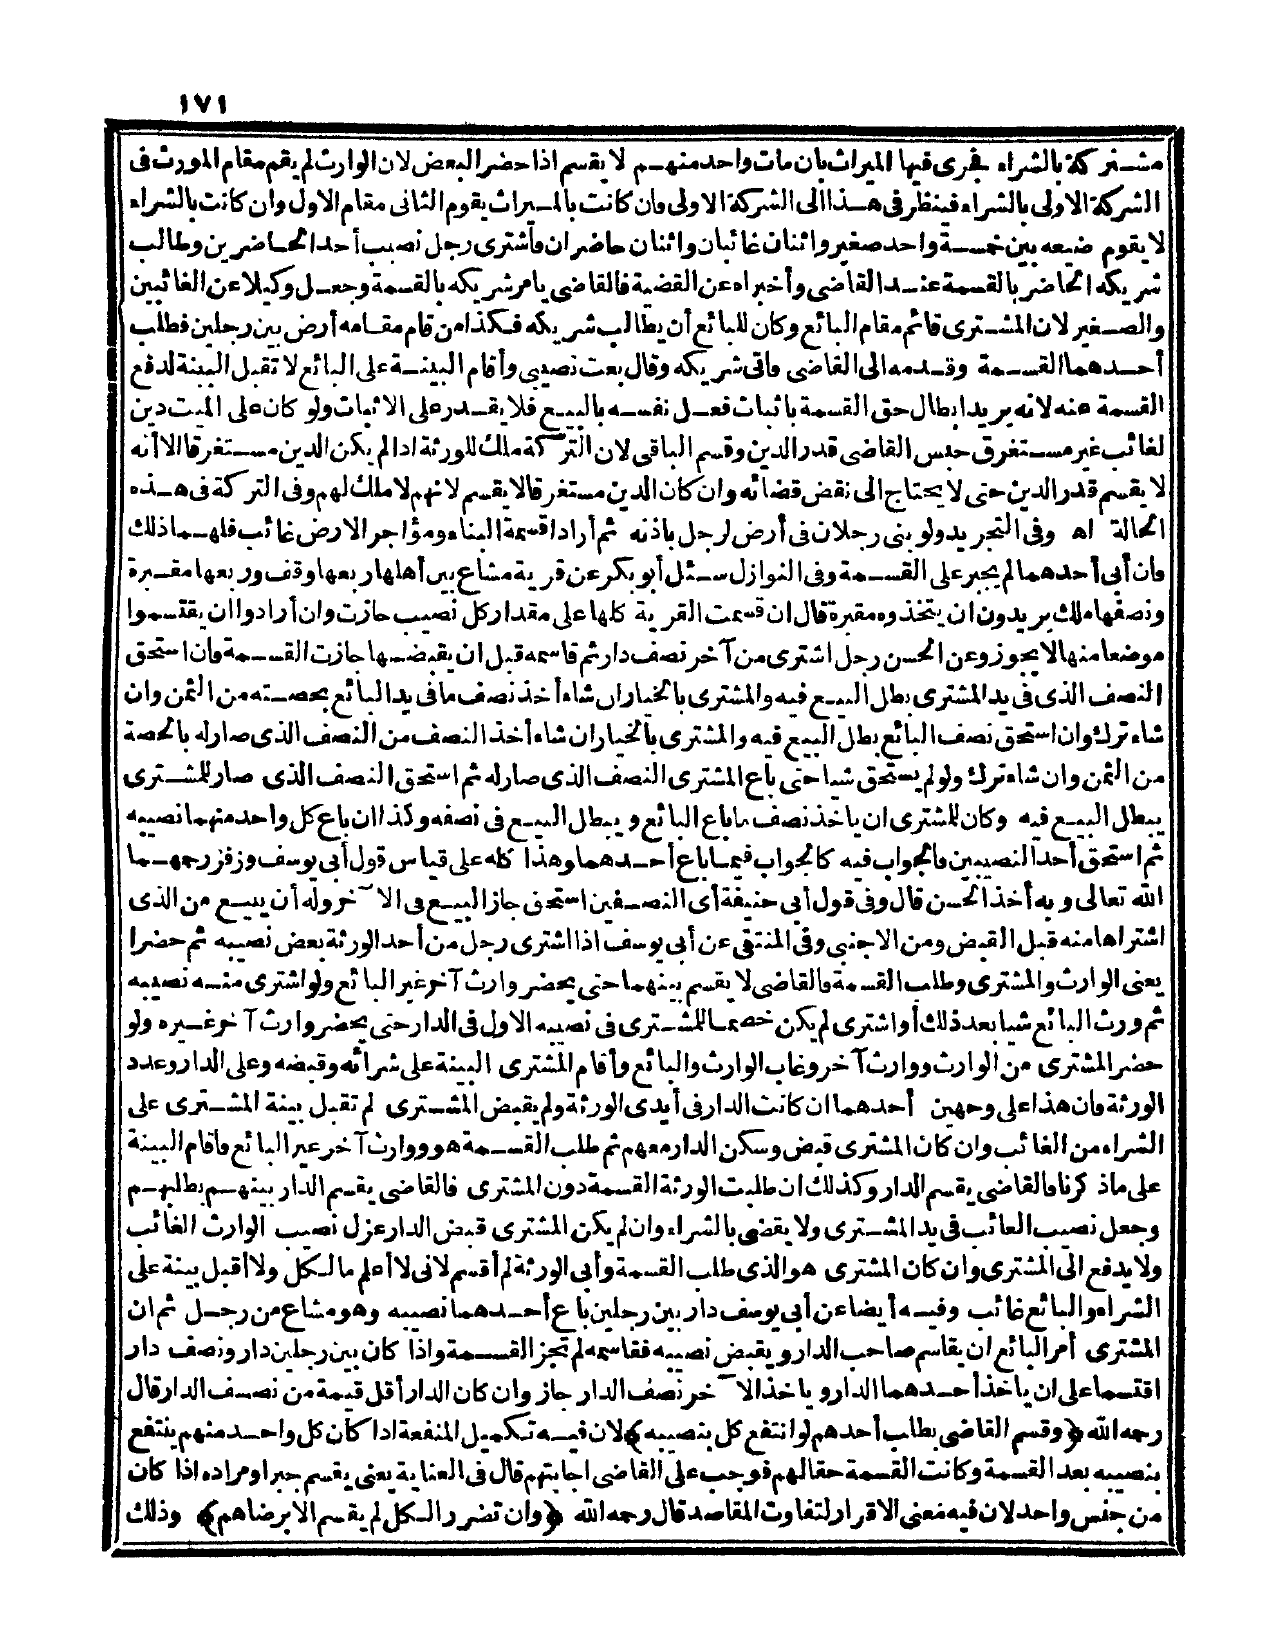 ١٧١
مشتركة بالشراء فجرى فيها الميراث بان مات واحد منهم لا يقسم اذا حضر البعض لان الوارث لم يقم مقام المورث فى
الشركة الاولى بالشراء فينظر فى هذا الى الشركة الاولى فان كانت بالميراث يقوم الثانى مقام الاول وان كانت بالشراء
لا يقوم ضيعه بين خمسة واحد صغير واثنان غائبان واثنان حاضران فاشترى رجل نصيب أحد الحاضرين وطالب
شريكه الحاضر بالقسمة عند القاضى وأخبراه عن القضية فالقاضى يامر شريكه بالقسمة وجعل وكيلا عن الغائبين
والصغير لان المشترى قائم مقام البائع وكان للبائع أن يطالب شريكه فكذا من قام مقامه أرض بين رجلين فطلب
أحدهما القسمة وقدمه الى القاضى فاقى شريكه وقال بعت نصيبى وأقام البينة على البائع لا تقبل البينة لدفع
القسمة عنه لانه يريد ابطال حق القسمة باثبات فعل نفسه بالبيع فلا يقدر على الاثبات ولو كان على الميت دين
لغائب غير مستغرق حبس القاضى قدر الدين وقسم الباقى لان التركة ملك للورثة اذا لم يكن الدين مستغرقا الا أنه
لا يقسم قدر الدين حتى لا يحتاج الى نقض قضائه وان كان الدين مستغرقا لا يقسم لانهم لا ملك لهم وفى التركة فى هذه
الحالة اه وفى التجريد ولو بنى رجلان فى أرض لرجل باذنه ثم أرادا قسمة البناء ومؤاجر الارض غائب فلهما ذلك
فان أبى أحدهما لم يجبر على القسمة وفى النوازل سئل أبو بكر عن قرية مشاع بين أهلها ربعها وقف وربعها مقبرة
ونصفها ملك يريدون ان يتخذوه مقبرة قال ان قسمت القرية كلها على مقدار كل نصيب جازت وان أرادوا ان يقتسموا
موضعا منها لا يجوز وعن الحسن رجل اشترى من آخر نصف دار ثم قاسمه قبل ان يقبضها جازت القسمة فان استحق
النصف الذى فى يد المشترى بطل البيع فيه والمشترى بالخيار ان شاء أخذ نصف ما فى يد البائع بحصته من الثمن وان
شاء ترك وان استحق نصف البائع بطل البيع فيه والمشترى بالخيار ان شاء أخذ النصف من النصف الذى صار له بالحصة
من الثمن وان شاء ترك ولو لم يستحق شيا حتى باع المشترى النصف الذى صار له ثم استحق النصف الذى صار للمشترى
يبطل البيع فيه وكان للمشترى ان ياخذ نصف ما باع البائع ويبطل البيع فى نصفه وكذا ان باع كل واحد منهما نصيبه
ثم استحق أحد النصيبين فالجواب فيه كالجواب فيما باع أحدهما وهذا كله على قياس قول أبى يوسف وزفر رحمهما
الله تعالى وبه أخذ الحسن قال وفى قول أبى حنيفة أى النصفين استحق جاز البيع فى الآخر وله أن يبيع من الذى
اشتراها منه قبل القبض ومن الاجنبى وفى المنتقى عن أبى يوسف اذا اشترى رجل من أحد الورثة بعض نصيبه ثم حضرا
يعنى الوارث والمشترى وطلب القسمة فالقاضى لا يقسم بينهما حتى يحضر وارث آخر غير البائع ولو اشترى منه نصيبه
ثم ورث البائع شيا بعد ذلك أو اشترى لم يكن خصما للمشترى فى نصيبه الاول فى الدار حتى يحضر وارث آخر غيره ولو
حضر المشترى من الوارث ووارث آخر وغاب الوارث والبائع وأقام المشترى البينة على شرائه وقبضه وعلى الدار وعدد
الورثة فان هذا على وجهين أحدهما ان كانت الدار فى أيدى الورثة ولم يقبض المشترى لم تقبل بينة المشترى على
الشراء من الغائب وان كان المشترى قبض وسكن الدار معهم ثم طلب القسمة هو ووارث آخر غير البائع فاقام البينة
على ماذ كرنا فالقاضى يقسم الدار وكذلك ان طلبت الورثة القسمة دون المشترى فالقاضى يقسم الدار بينهم بطلبهم
وجعل نصيب الغائب فى يد المشترى ولا يقضى بالشراء وان لم يكن المشترى قبض الدار عزل نصيب الوارث الغائب
ولا يدفع الى المشترى وان كان المشترى هو الذى طلب القسمة وأبى الورثة لم أقسم لانى لا أعلم مالكل ولا أقبل بينة على
الشراء والبائع غائب وفيه أيضا عن أبى يوسف دار بين رجلين باع أحدهما نصيبه وهو مشاع من رجل ثم ان
المشترى أمر البائع ان يقاسم صاحب الدار ويقبض نصيبه فقاسمه لم تجز القسمة واذا كان بين رجلين دار ونصف دار
اقتسما على ان ياخذ أحدهما الدار وياخذ الآخر نصف الدار جاز وان كان الدار أقل قيمة من نصف الدار قال
رحمه الله ﴿وقسم القاضى بطلب أحدهم لو انتفع كل بنصيبه﴾ لان فيه تكميل المنفعة اذا كان كل واحد منهم ينتفع
بنصيبه بعد القسمة وكانت القسمة حقا لهم فوجب على القاضى اجابتهم قال فى العناية يعنى يقسم جبرا ومراده اذا كان
من جنس واحد لان فيه معنى الاقرار لتفاوت المقاصد قال رحمه الله ﴿وان تضرر الكل لم يقسم الا برضاهم﴾ وذلك